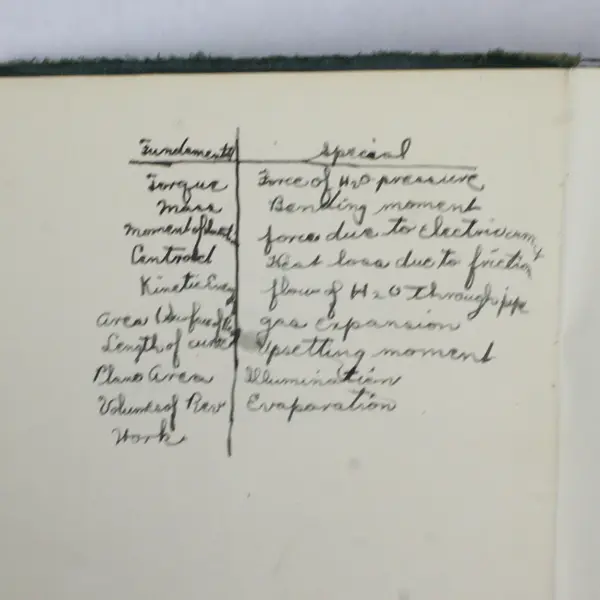 Fundamental Special
Torque Force of H2O pressure
Mass Bending moment
Moment of force due to Electric
Centroid Heat loss due to friction
Kinetic Energy flow of H2O through pipe
Area gas expansion
Length of curve Upsetting moment
Plane Area Illumination
Volumes of Rev Evaporation
Work